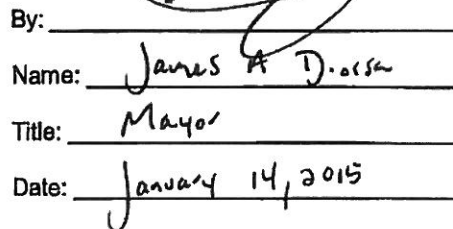 By:
Name: James A Diossa
Title: Mayor
Date: January 14, 2015